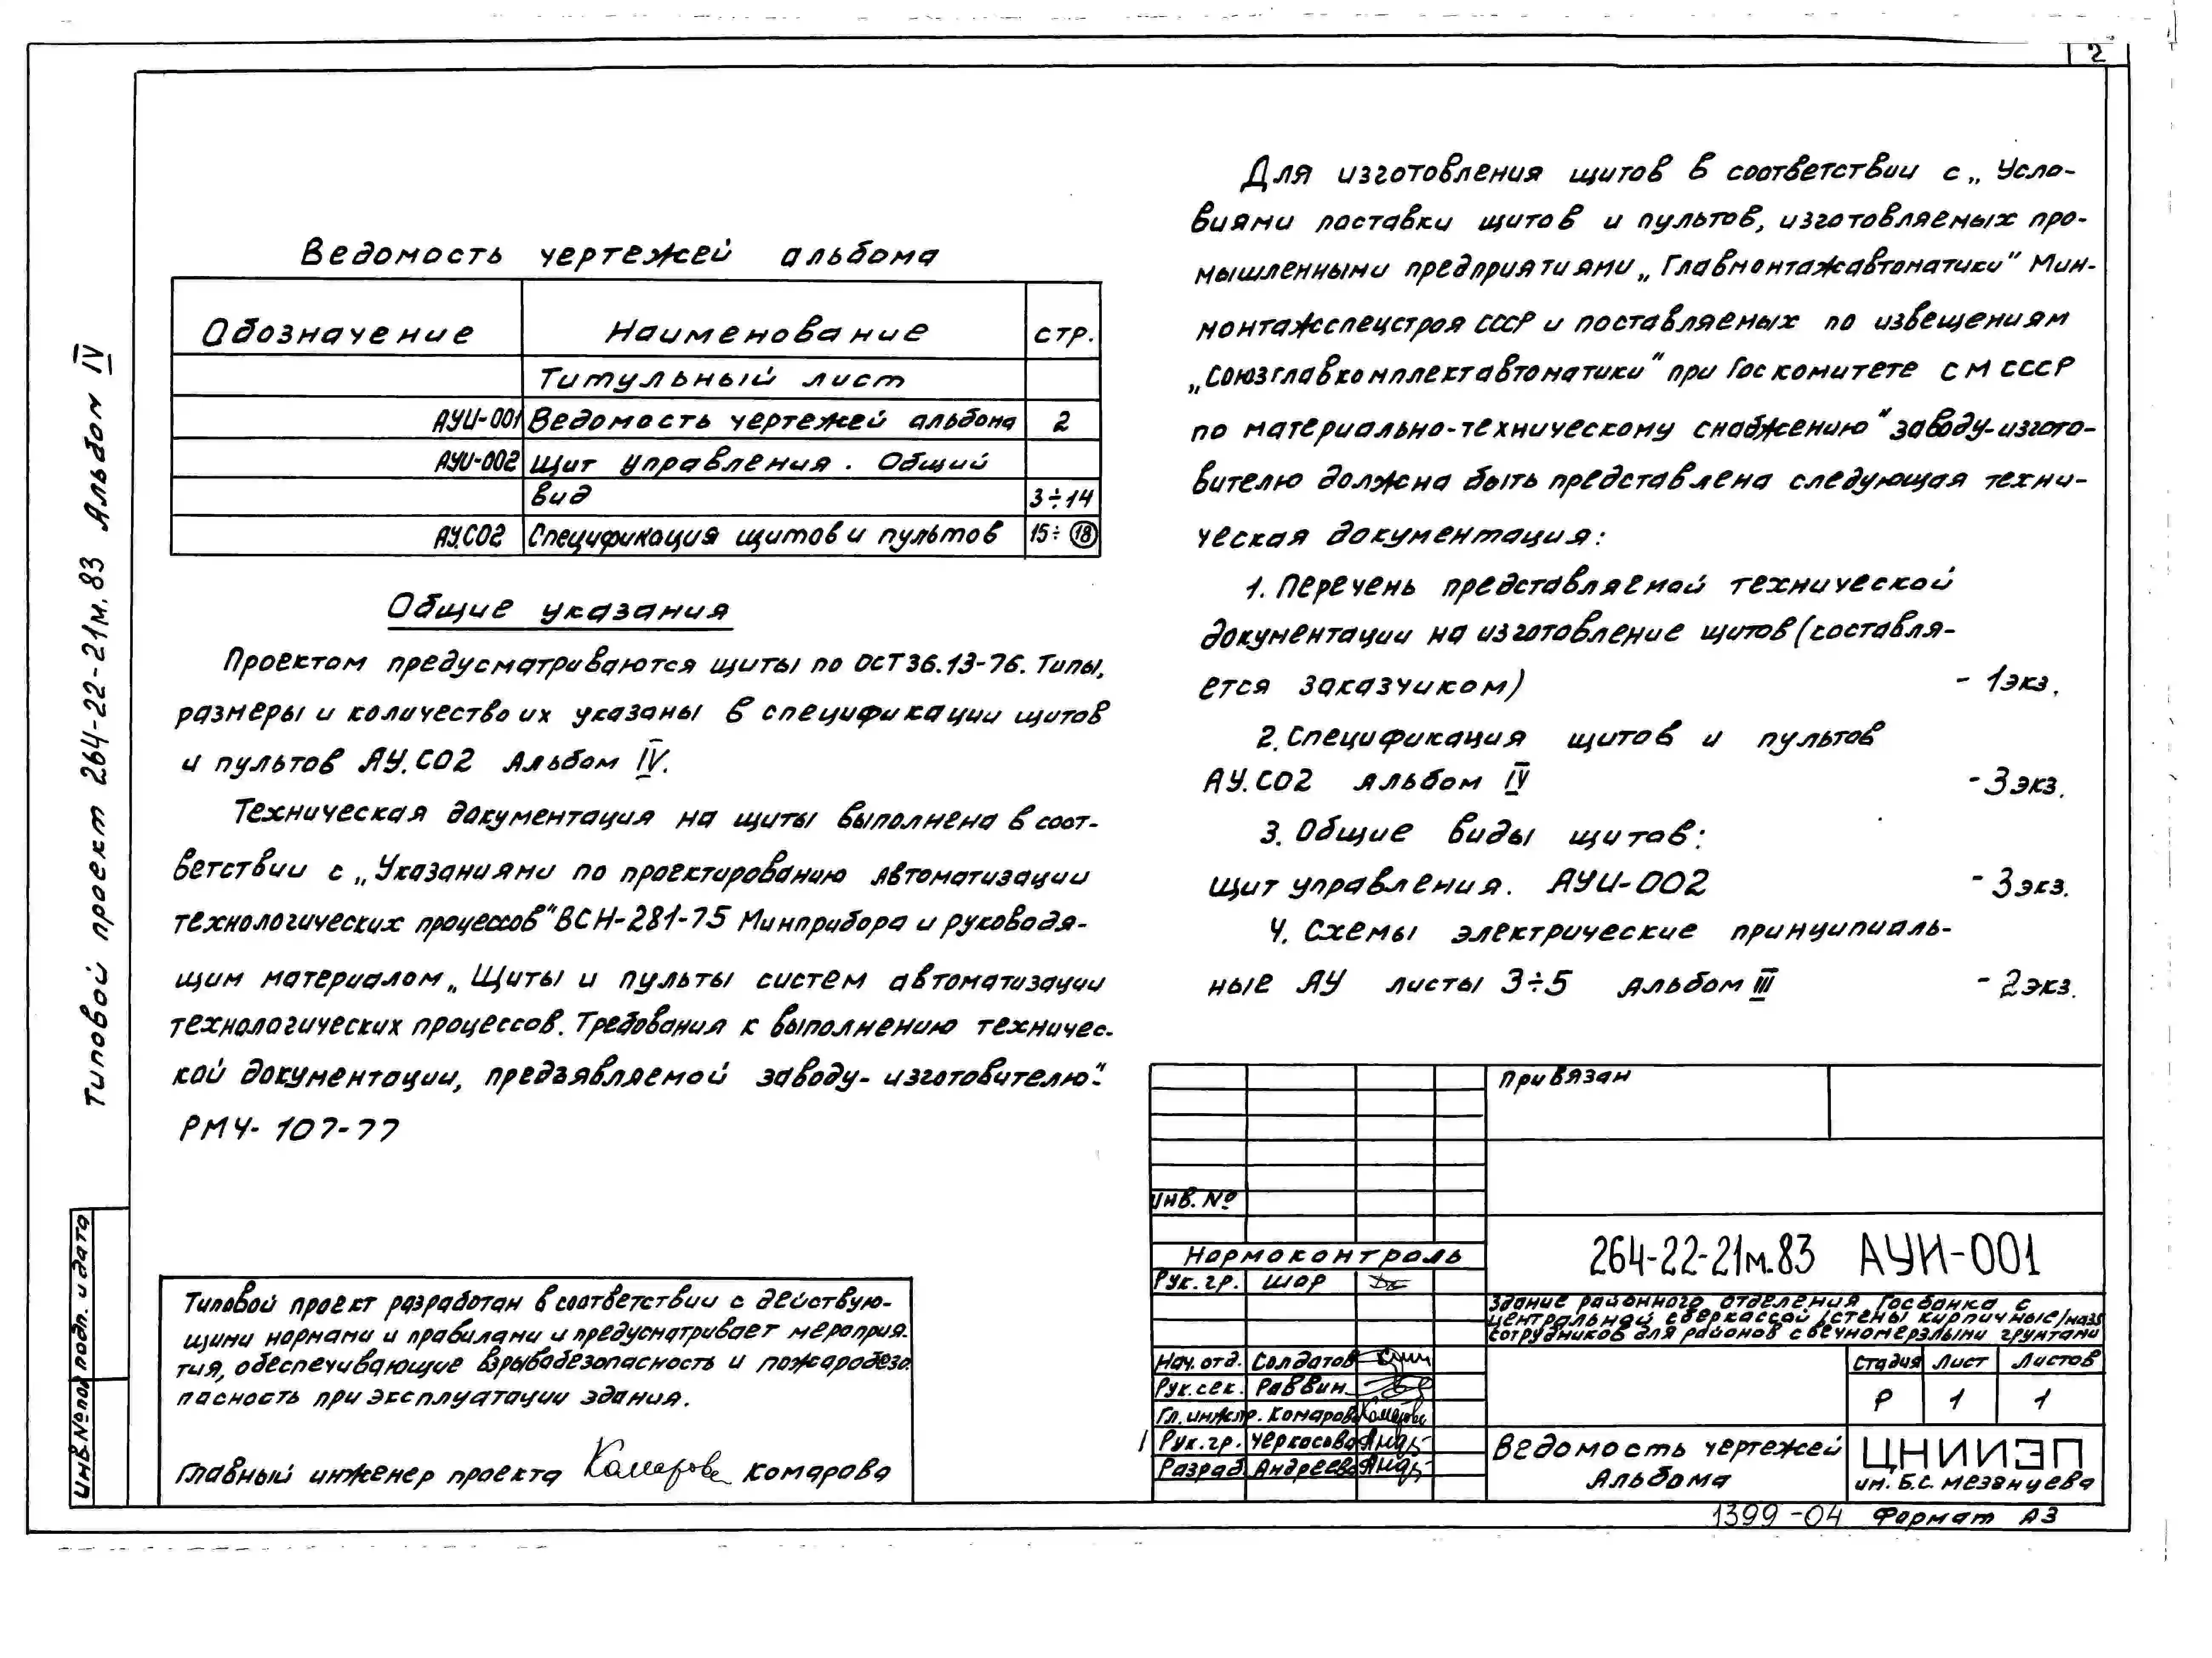 2
Типовой проект 264-22-21м.83 Альбом IV
Ведомость чертежей альбома
Обозначение Наименование стр.
Титульный лист
АУИ-001 Ведомость чертежей альбома 2
АУИ-002 Щит управления. Общий
вид 3÷14
АУ.СО2 Спецификация щитов и пультов 15÷18
Общие указания
Проектом предусматриваются щиты по ОСТ36.13-76. Типы,
размеры и количество их указаны в спецификации щитов
и пультов АУ.СО2 Альбом IV.
Техническая документация на щиты выполнена в соот-
ветствии с „Указаниями по проектированию автоматизации
технологических процессов" ВСН-281-75 Минприбора и руководя-
щим материалом „Щиты и пульты систем автоматизации
технологических процессов. Требования к выполнению техничес-
кой документации, предъявляемой заводу-изготовителю".
РМ4-107-77
Типовой проект разработан в соответствии с действую-
щими нормами и правилами и предусматривает мероприя-
тия, обеспечивающие взрывобезопасность и пожаробезо-
пасность при эксплуатации здания.
Главный инженер проекта Комарова Комарова
Для изготовления щитов в соответствии с „Усло-
виями поставки щитов и пультов, изготовляемых про-
мышленными предприятиями „Главмонтажавтоматики" Мин-
монтажспецстроя СССР и поставляемых по извещениям
„Союзглавкомплектавтоматики" при Госкомитете СМ СССР
по материально-техническому снабжению" заводу-изгото-
вителю должна быть представлена следующая техни-
ческая документация:
1. Перечень представляемой технической
документации на изготовление щитов (составля-
ется заказчиком) - 1экз.
2. Спецификация щитов и пультов
АУ.СО2 Альбом IV - 3экз.
3. Общие виды щитов:
Щит управления. АУИ-002 - 3экз.
4. Схемы электрические принципиаль-
ные АУ листы 3÷5 Альбом III - 2экз.
Привязан
Инв. №
Нормоконтроль
Рук. гр. Шор
264-22-21м.83 АУИ-001
Здание районного отделения Госбанка с
центральной сберкассой /стены кирпичные/ на 35
сотрудников для районов с вечномерзлыми грунтами
Нач. отд. Солдатов
Рук. сек. Раввин
Гл. инж. пр. Комарова Комарова
Рук. гр. Черкасова
Разраб. Андреева
Стадия Лист Листов
Р 1 1
Ведомость чертежей
Альбома
ЦНИИЭП
им. Б.С. Мезенцева
1399-04 Формат А3
Инв. № подл. Подп. и дата